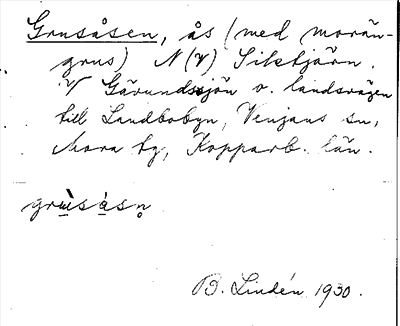 Grusåsen, ås (med morän-
grus) N (V) Siktjärn.
V Gärundssjön o. landsvägen
till Landbobyn, Venjans sn,
Mora tg, Kopparb. län.
grùsåsn̥
B. Lindén 1930.